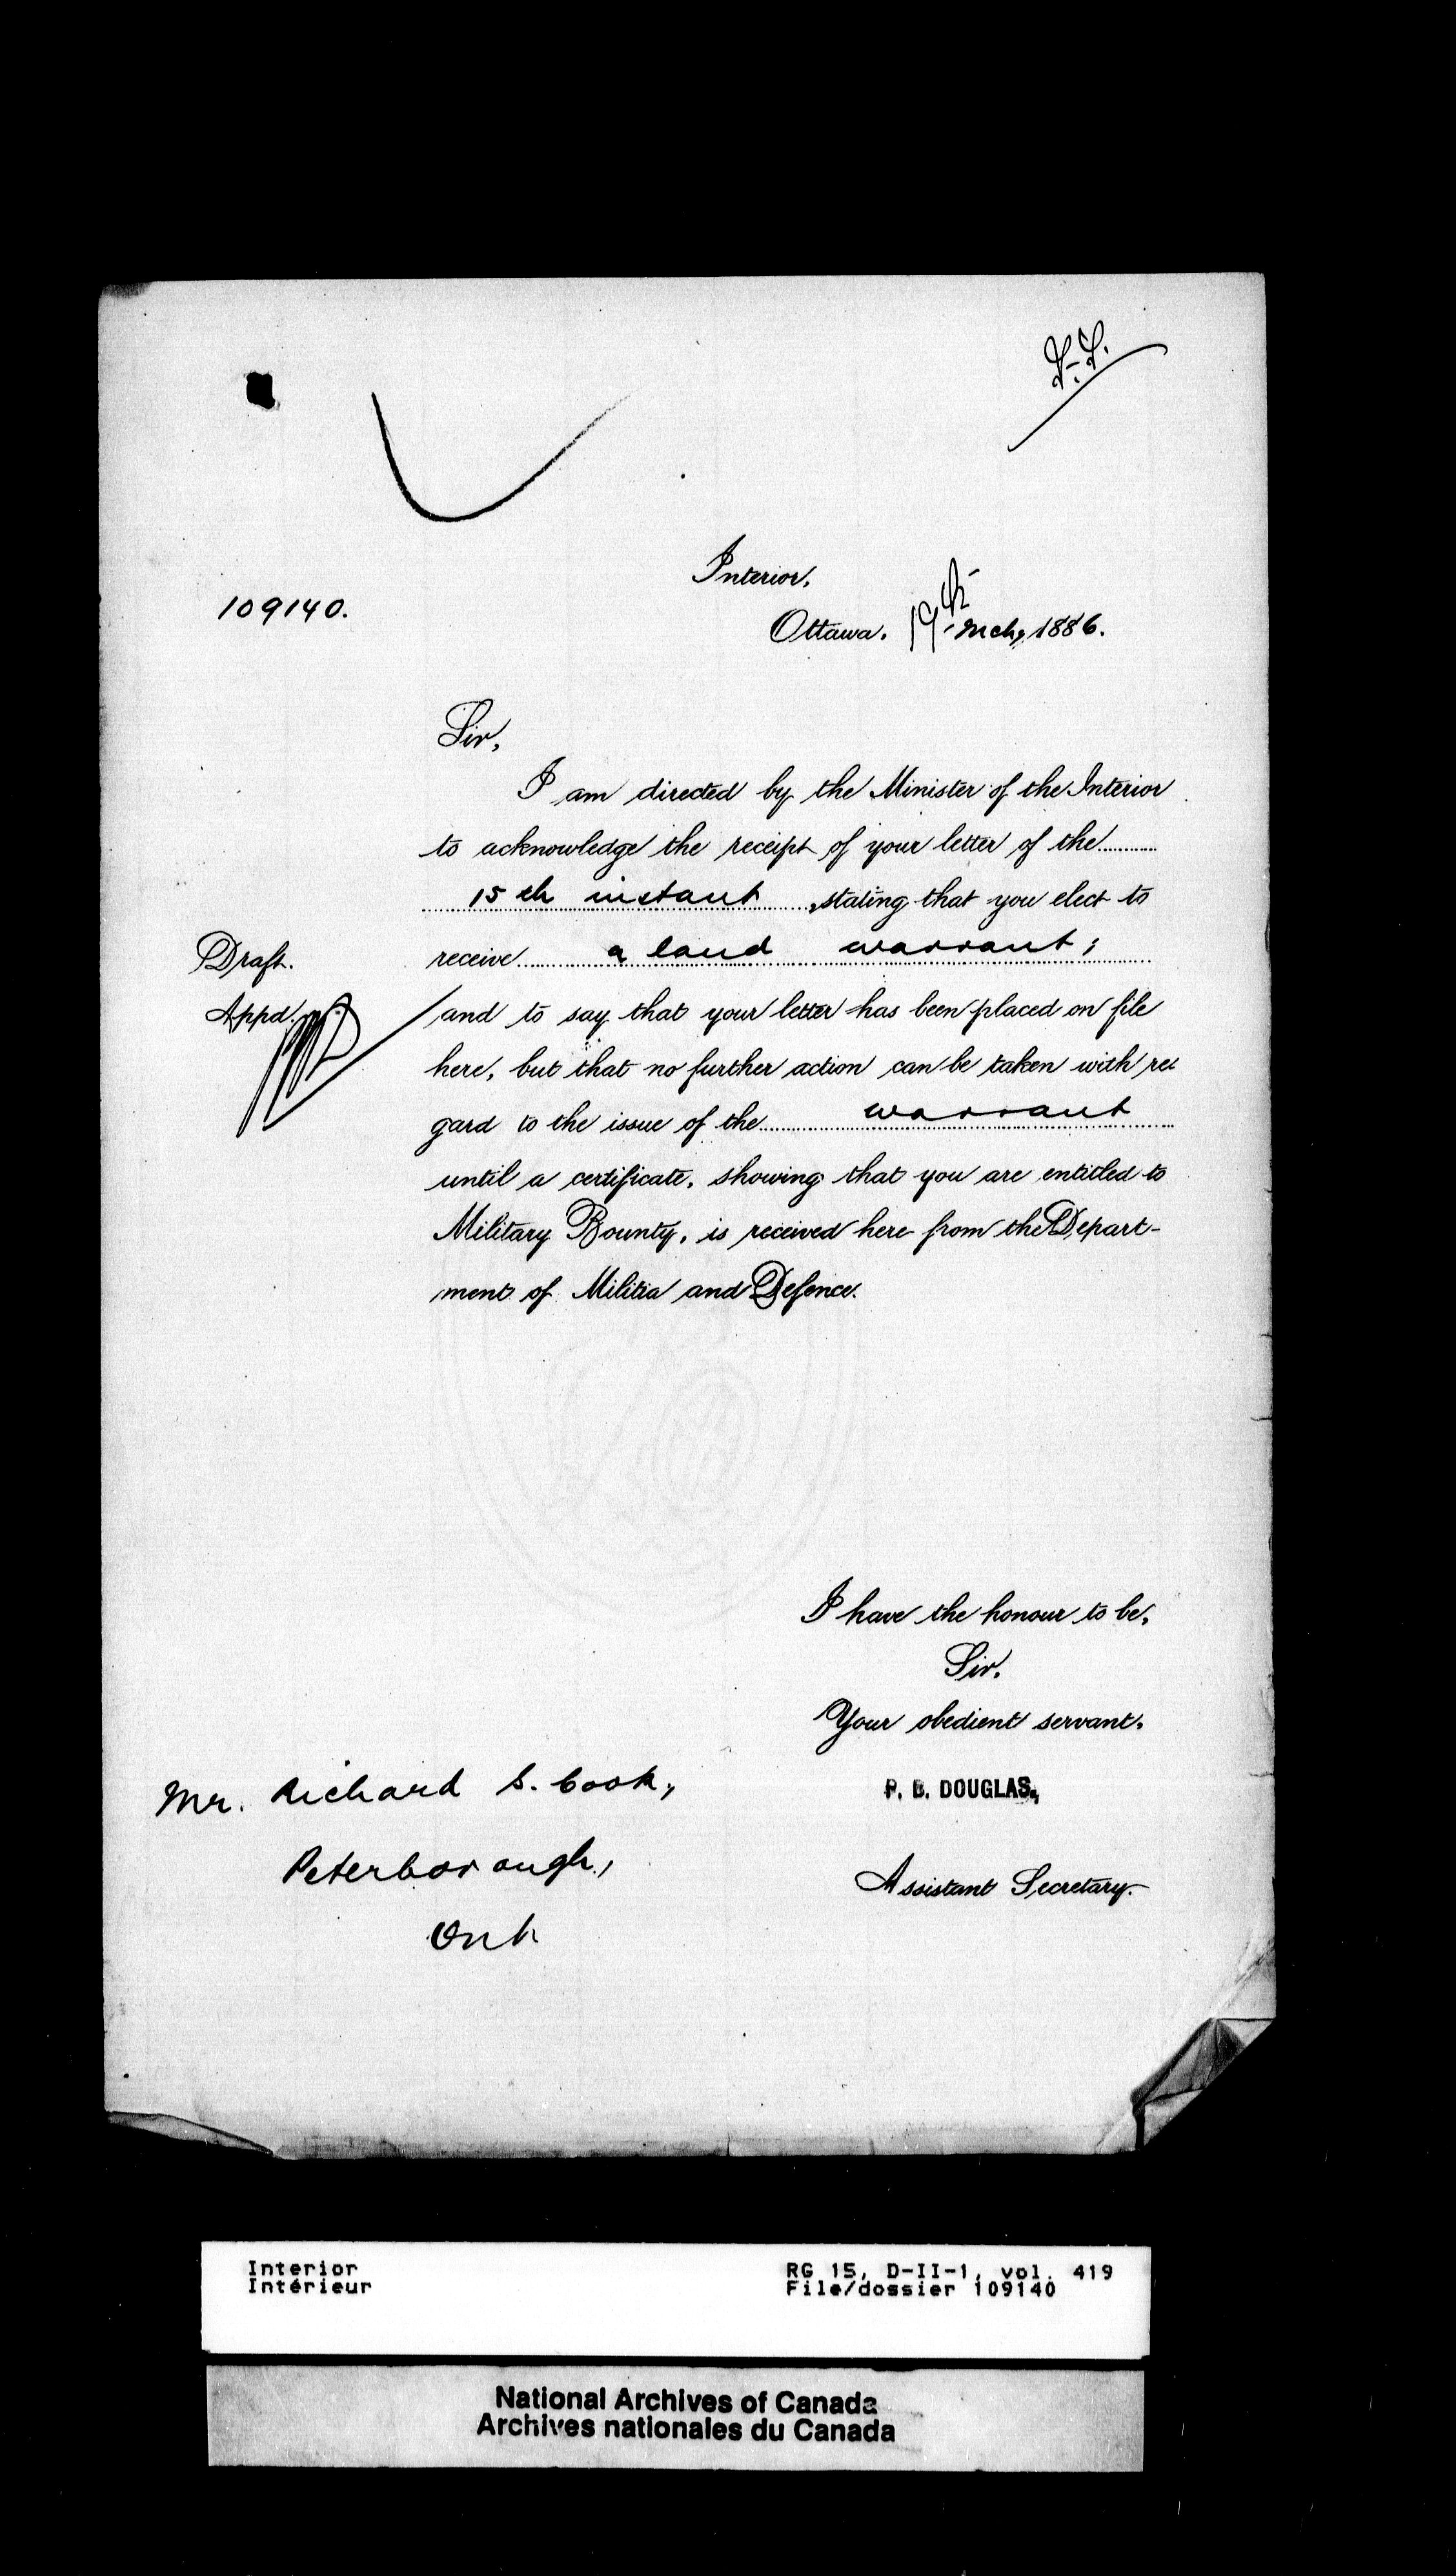 109140.
Interior,
Ottawa. 19th Mch, 1886.
Sir,
I am directed by the Minister of the Interior
to acknowledge the receipt of your letter of the
15th instant, stating that you elect to
receive a land warrant;
Draft.
Appd.
and to say that your letter has been placed on file
here, but that no further action can be taken with re-
gard to the issue of the warrant
until a certificate, showing that you are entitled to
Military Bounty, is received here from the Depart-
ment of Militia and Defence.
I have the honour to be,
Sir,
Your obedient servant,
P. B. DOUGLAS,
Assistant Secretary.
Mr. Richard S. Cook,
Peterborough,
Ont
Interior
Intérieur
RG 15, D-II-1, vol. 419
File/dossier 109140
National Archives of Canada
Archives nationales du Canada